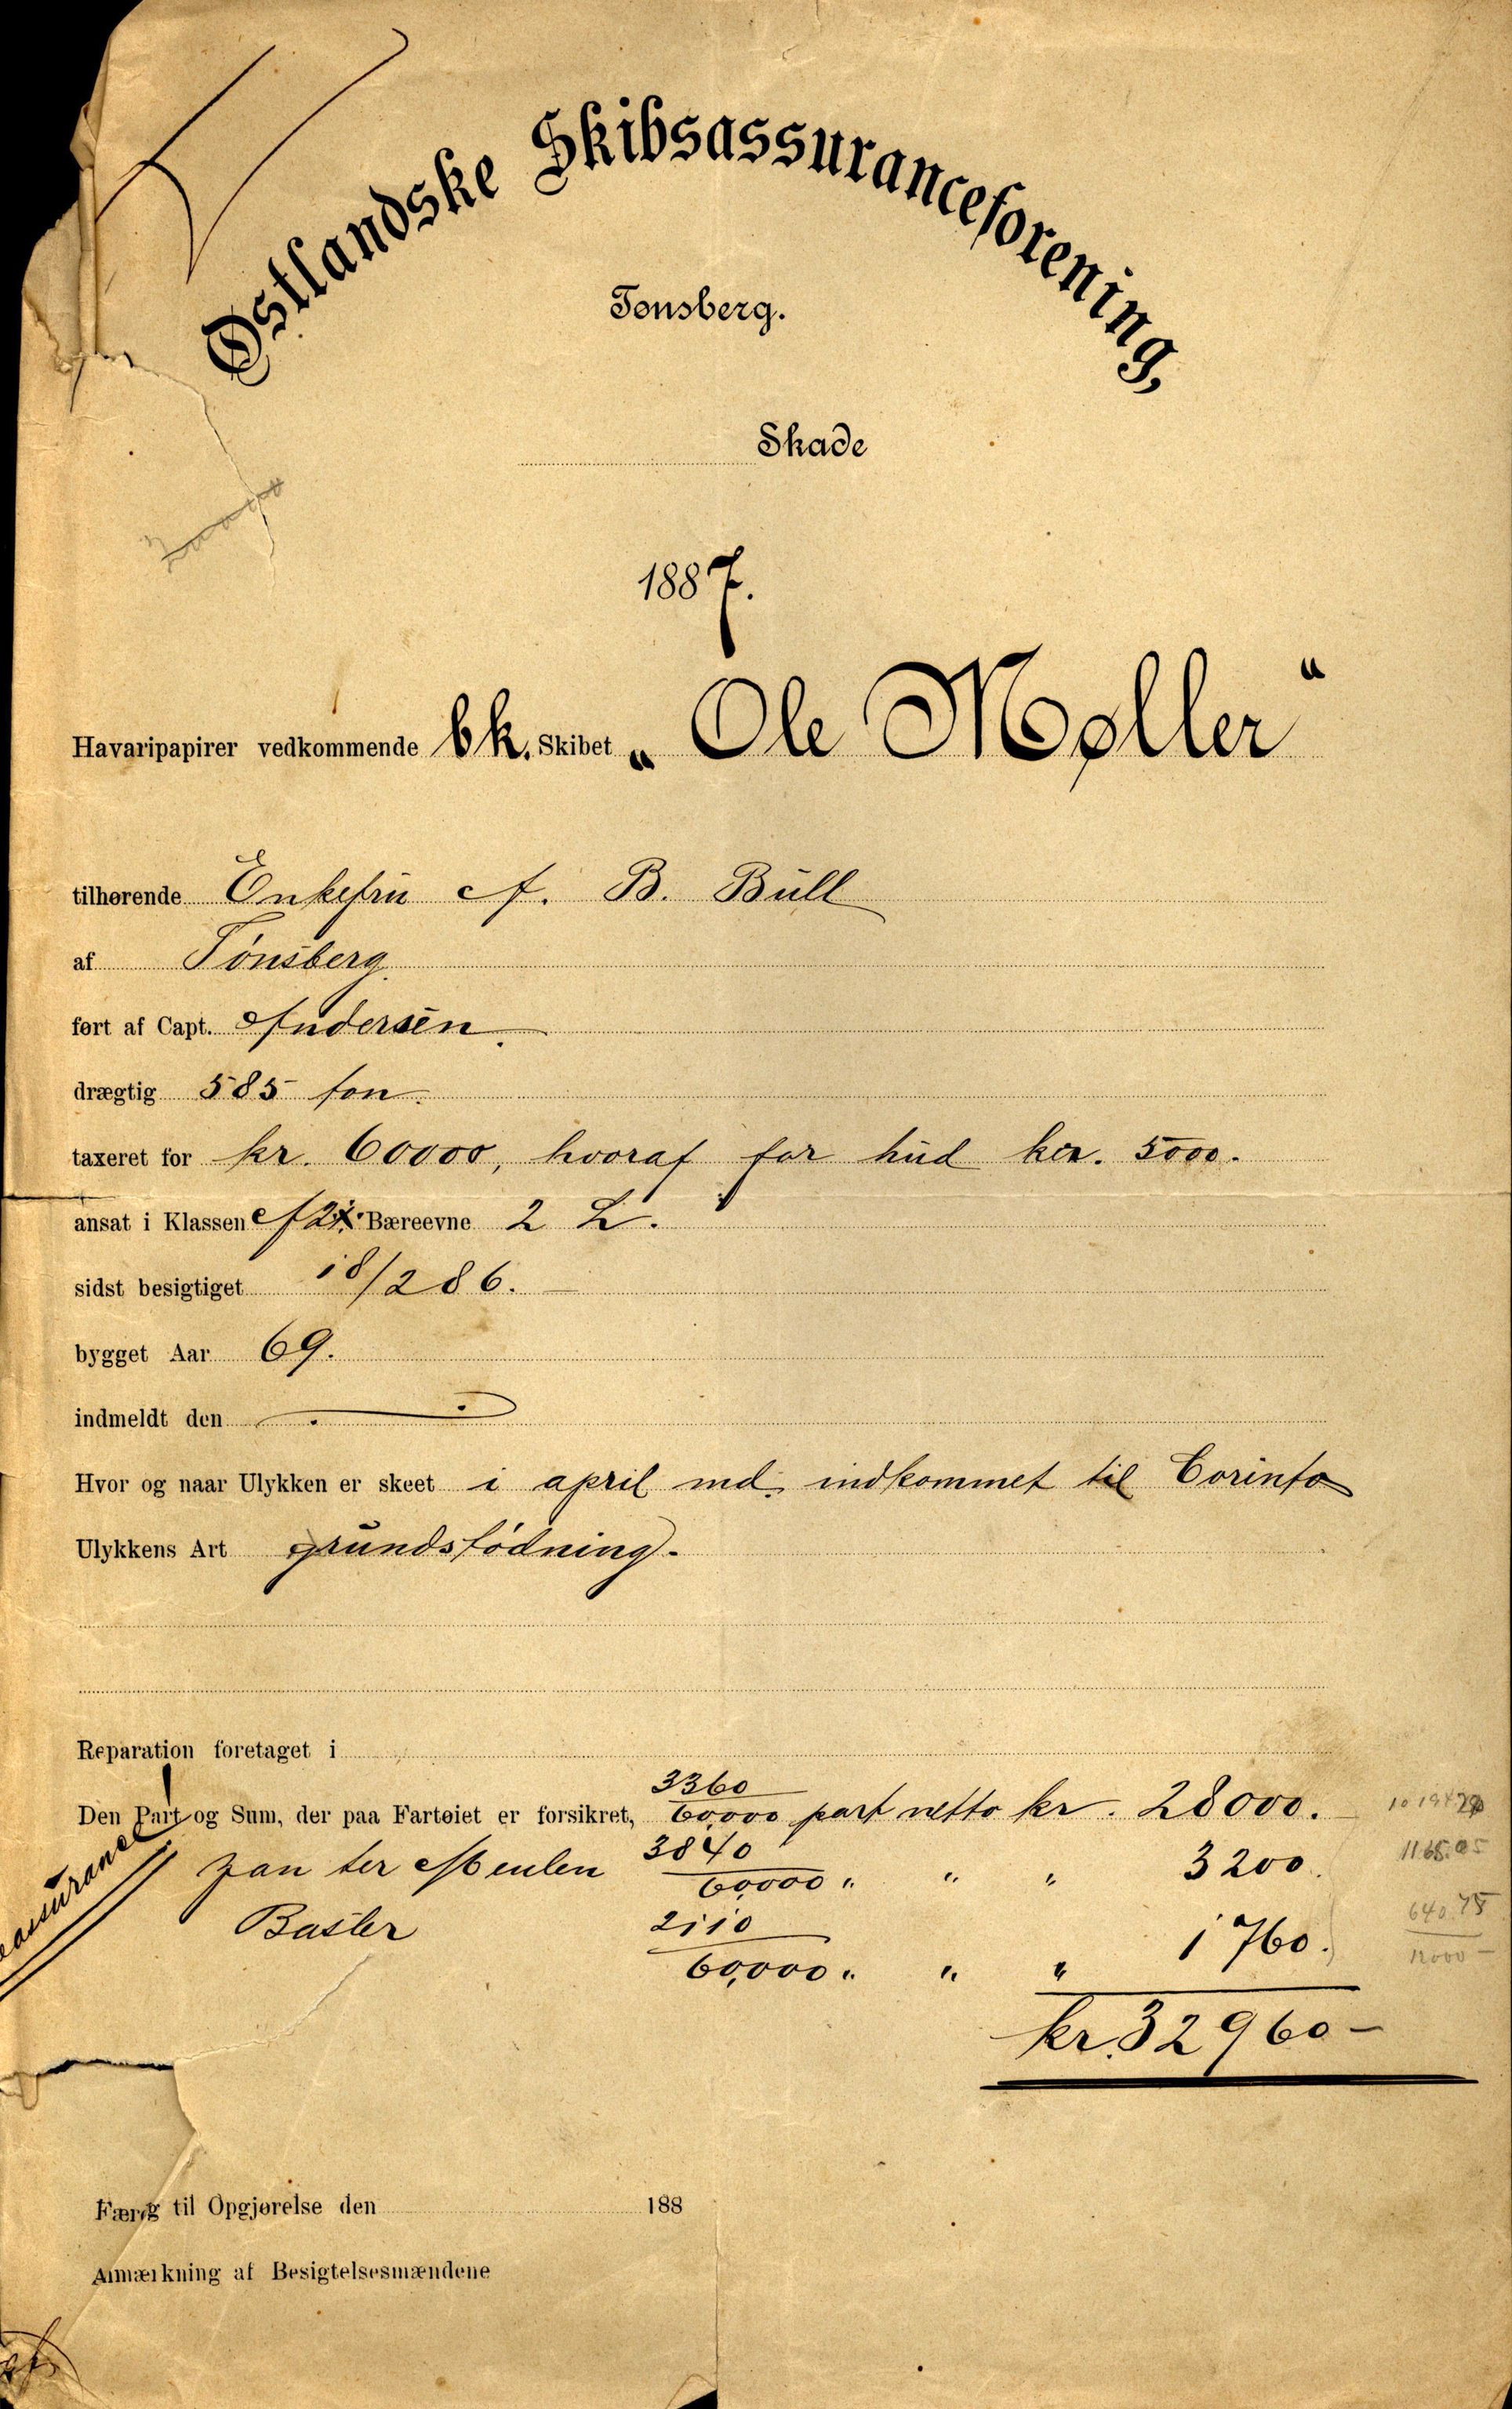 Østlandske Skibsassuranceforening,
Tønsberg.
Skade
1887.
Havaripapirer vedkommende bk. Skibet „Ole Møller"
tilhørende Enkefru A. B. Bull
af Tønsberg
ført af Capt. Andersen.
drægtig 585 ton.
taxeret for kr. 60000, hvoraf for hud kr. 5000.
ansat i Klassen A2 Bæreevne 2 L.
sidst besigtiget 18/2 86.
bygget Aar 69.
indmeldt den
Hvor og naar Ulykken er skeet i april md. indkommet til Corinto
Ulykkens Art grundstødning.
Reparation foretaget i
3360
Den Part og Sum, der paa Fartøiet er forsikret, 60,000 part netto kr. 28000.
Jan ter Meulen 3840
60,000 " " " 3200.
Basler 2110
60,000 " " " 1760.
kr. 32960 –
Færdig til Opgjørelse den 188
Anmærkning af Besigtelsesmændene